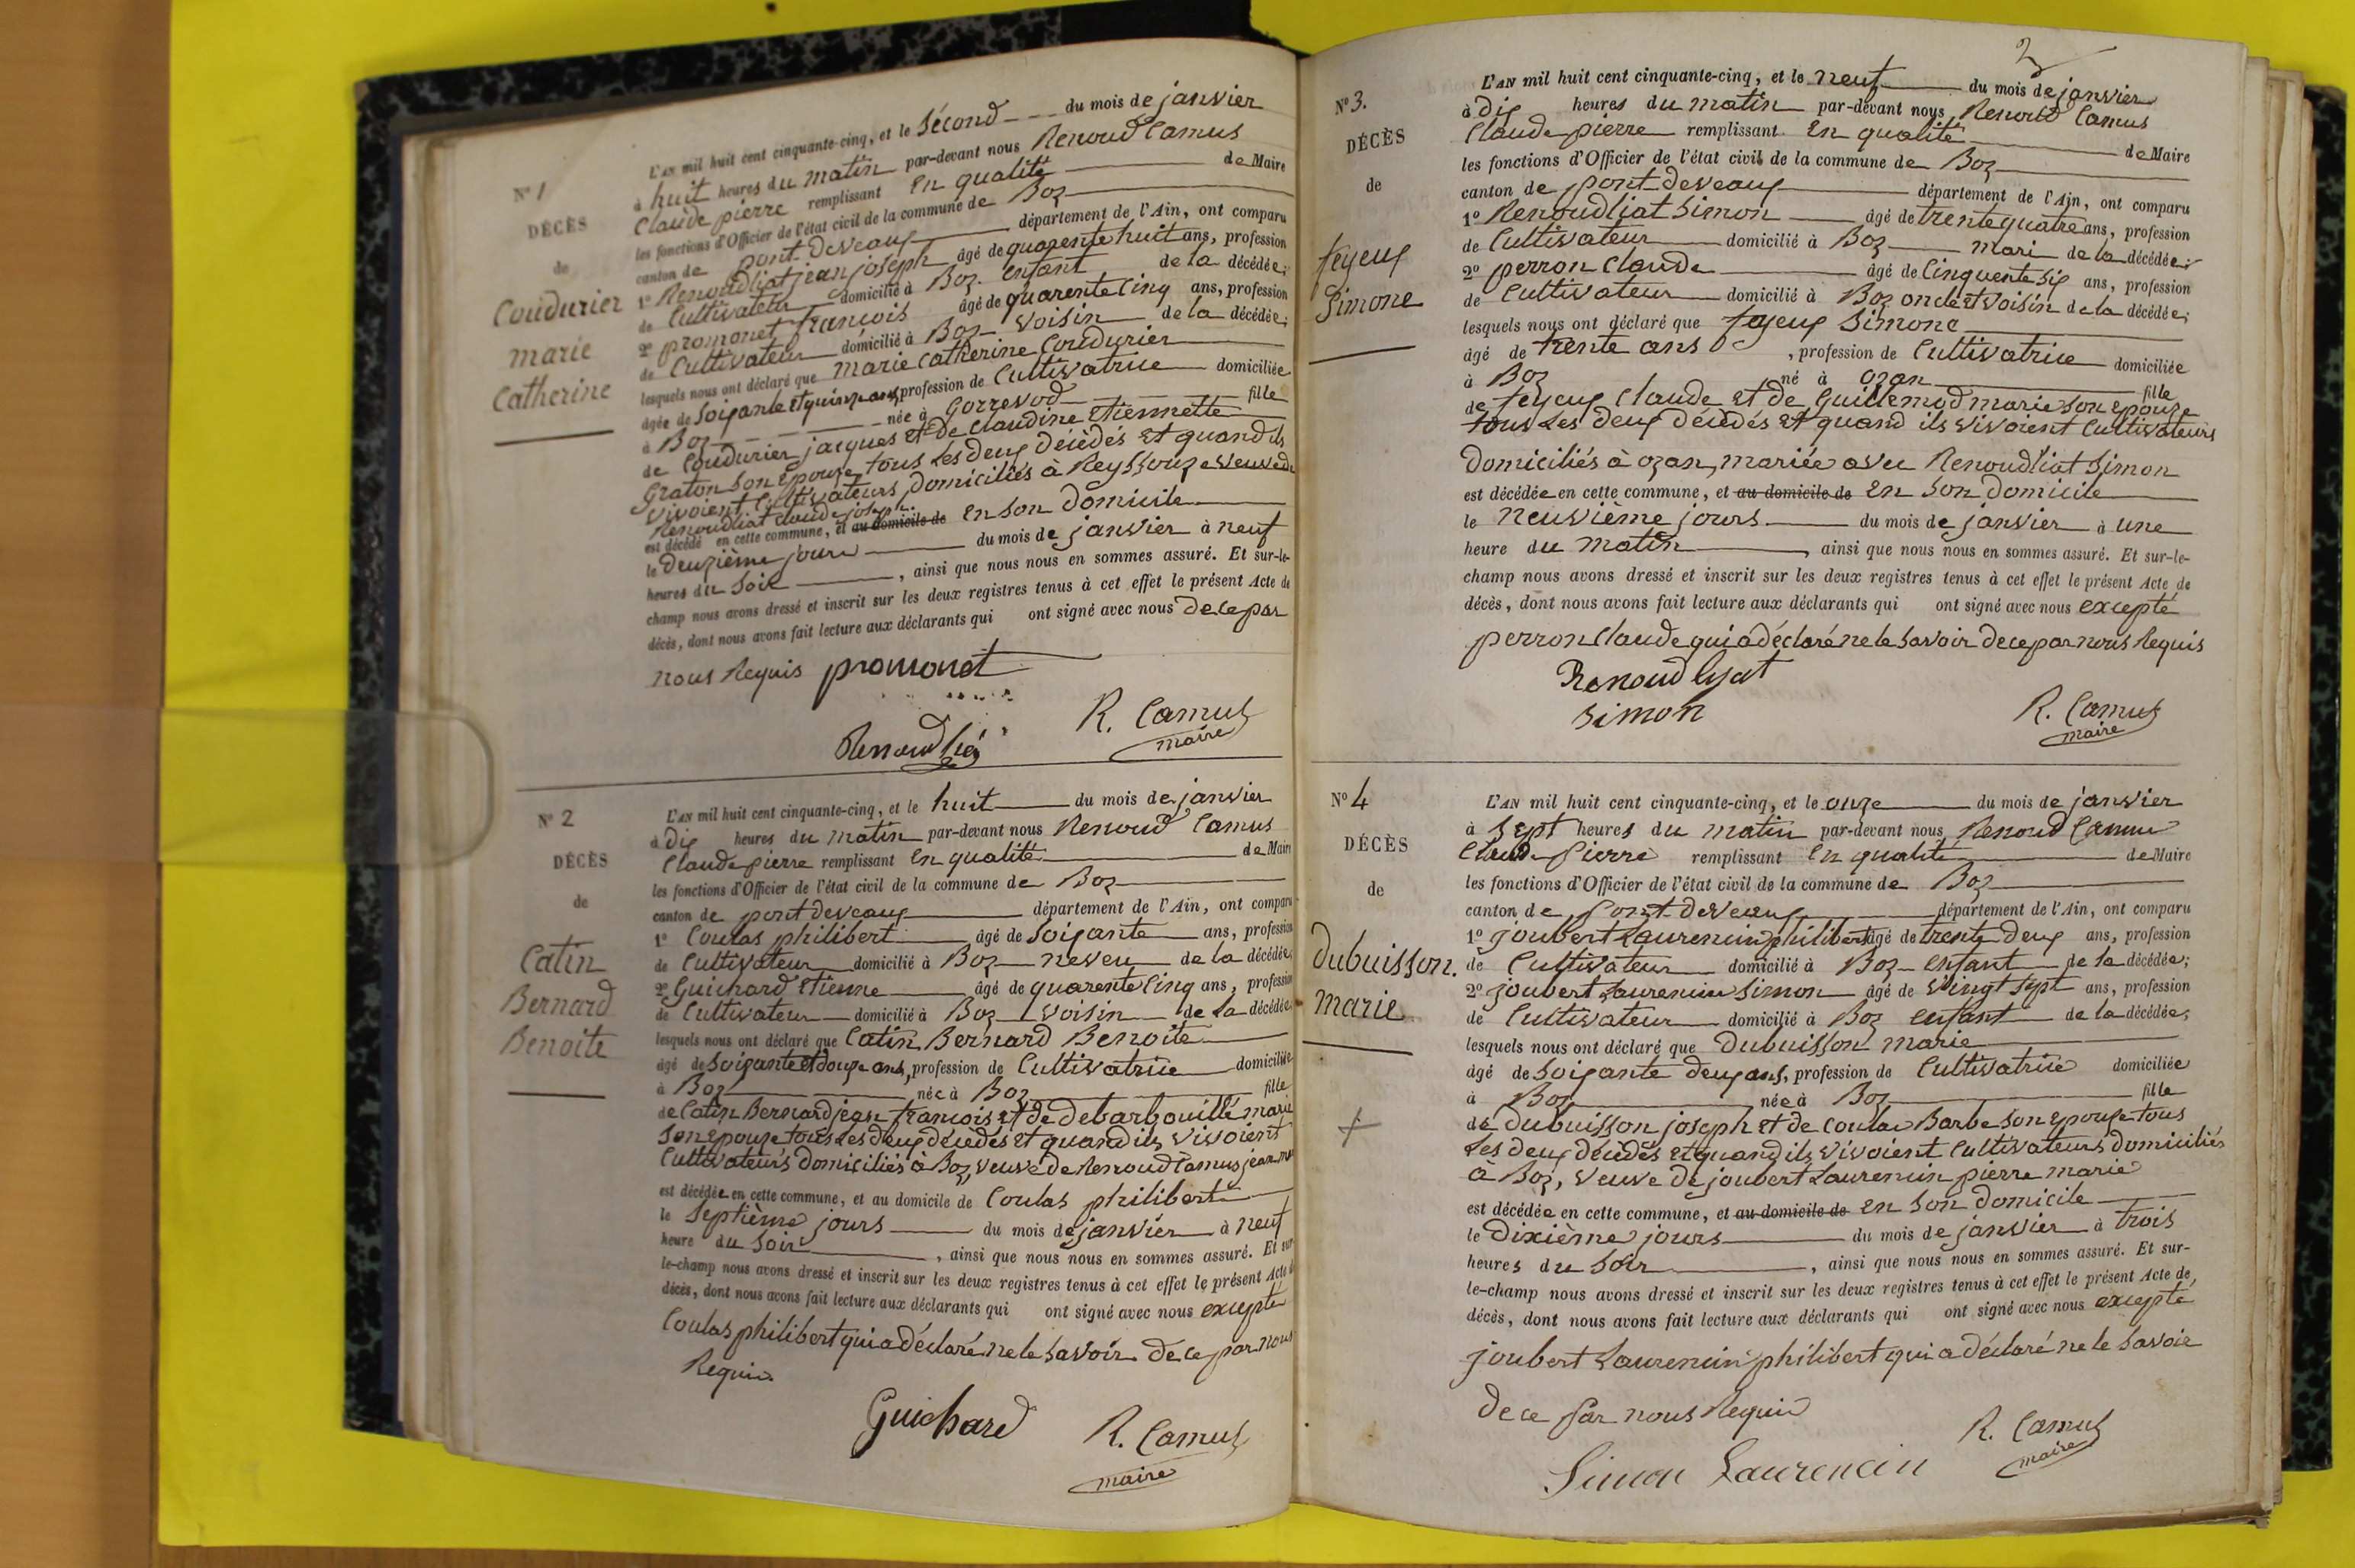 N° 1
DÉCÈS
de
Coudurier
marie
Catherine
L'AN mil huit cent cinquante-cinq, et le Sécond du mois de janvier
à huit heures du matin par-devant nous Renoud Camus
Claude pierre remplissant en qualité de Maire
les fonctions d'Officier de l'état civil de la commune de Boz
canton de pont-deveaux département de l'Ain, ont comparu
1° Renoudliat jean joseph âgé de quarente huit ans, profession
de Cultivateur domicilié à Boz. enfant de la décédée;
2° promonet françois âgé de quarente Cinq ans, profession
de Cultivateur domicilié à Boz voisin de la décédée;
lesquels nous ont déclaré que marie Catherine Coudurier
âgée de Soixante et quinze ans, profession de Cultivatrice domiciliée
à Boz née à Gorrevod fille
de Coudurier jacques et de Claudine Etiennette
Graton Son Epouze, tous les deux décédés et quand ils
vivoient Cultivateurs, domiciliés à Reyssouze veuve de
Renoudliat Claude joseph.
est décédé en cette commune, et au domicile de en Son Domicile
le deuxième jours du mois de janvier à neuf
heures du Soir, ainsi que nous nous en sommes assuré. Et sur-le-
champ nous avons dressé et inscrit sur les deux registres tenus à cet effet le présent Acte de
décès, dont nous avons fait lecture aux déclarants qui ont signé avec nous de ce par
nous Requis promonet
R. Camus
maire
N° 2
DÉCÈS
de
Catin
Bernard
Benoite
L'AN mil huit cent cinquante-cinq, et le huit du mois de janvier
à dix heures du matin par-devant nous Renoud Camus
Claude pierre remplissant en qualité de Maire
les fonctions d'Officier de l'état civil de la commune de Boz
canton de pont deveaux département de l'Ain, ont comparu
1° Coulas philibert âgé de Soixante ans, profession
de Cultivateur domicilié à Boz neveu de la décédée;
2° Guichard Etienne âgé de quarente Cinq ans, profession
de Cultivateur domicilié à Boz voisin de la décédée
lesquels nous ont déclaré que Catin Bernard Benoite
âgé de Soixante et douze ans, profession de Cultivatrice domiciliée
à Boz née à Boz fille
de Catin Bernard jean françois et de debarbouillé marie
Son epouze tous les deux décédés et quand ils vivoient
Cultivateurs domiciliés à Boz, veuve de Renoud Camus jean
est décédée en cette commune, et au domicile de Coulas philibert
le Septième jours du mois de janvier à neuf
heure du Soir, ainsi que nous nous en sommes assuré. Et sur
le-champ nous avons dressé et inscrit sur les deux registres tenus à cet effet le présent Acte de
décès, dont nous avons fait lecture aux déclarants qui ont signé avec nous excepté
Coulas philibert qui a déclaré ne le Savoir de ce par nous
Requis
Guichard
R. Camus
maire
2
N° 3.
DÉCÈS
de
feyeux
Simone
L'AN mil huit cent cinquante-cinq, et le neuf du mois de janvier
à dix heures du matin par-devant nous Renoud Camus
Claude pierre remplissant en qualité de Maire
les fonctions d'Officier de l'état civil de la commune de Boz
canton de pont-deveaux département de l'Ain, ont comparu
1° Renoudliat Simon âgé de trente quatre ans, profession
de Cultivateur domicilié à Boz mari de la décédée;
2° perron Claude âgé de Cinquente Six ans, profession
de Cultivateur domicilié à Boz oncle et voisin de la décédée;
lesquels nous ont déclaré que feyeux Simone
âgé de trente ans, profession de Cultivatrice domiciliée
à Boz né à ozan fille
de feyeux Claude et de Guillemod marie Son epouze
tous les deux décédés et quand ils vivoient Cultivateurs
Domiciliés à ozan, mariée avec Renoudliat Simon
est décédée en cette commune, et au domicile de en Son Domicile
le neuvième jours du mois de janvier à une
heure du matin, ainsi que nous nous en sommes assuré. Et sur-le-
champ nous avons dressé et inscrit sur les deux registres tenus à cet effet le présent Acte de
décès, dont nous avons fait lecture aux déclarants qui ont signé avec nous excepté
perron Claude qui a déclaré ne le Savoir de ce par nous Requis
Renoud lyat
Simon
R. Camus
maire
N° 4
DÉCÈS
de
Dubuisson.
marie
L'AN mil huit cent cinquante-cinq, et le onze du mois de janvier
à Sept heures du matin par-devant nous Renoud Camus
Claude Pierre remplissant en qualité de Maire
les fonctions d'Officier de l'état civil de la commune de Boz
canton de Pont-deveaux département de l'Ain, ont comparu
1° joubert Laurencin philibert âgé de trente deux ans, profession
de Cultivateur domicilié à Boz enfant de la décédée;
2° joubert Laurencin Simon âgé de vingt Sept ans, profession
de Cultivateur domicilié à Boz enfant de la décédée;
lesquels nous ont déclaré que Dubuisson marie
âgé de Soixante deux ans, profession de Cultivatrice domiciliée
à Boz née à Boz fille
de Dubuisson joseph et de Coulas Barbe Son epouze tous
les deux décédés et quand ils vivoient Cultivateurs domiciliés
à Boz, veuve de joubert Laurencin pierre marie
est décédée en cette commune, et au domicile de en Son domicile
le Dixième jours du mois de janvier à trois
heures du Soir, ainsi que nous nous en sommes assuré. Et sur-
le-champ nous avons dressé et inscrit sur les deux registres tenus à cet effet le présent Acte de
décès, dont nous avons fait lecture aux déclarants qui ont signé avec nous excepté
joubert Laurencin philibert qui a déclaré ne le Savoir
de ce par nous Requis
R. Camus
maire
Simon Laurencin